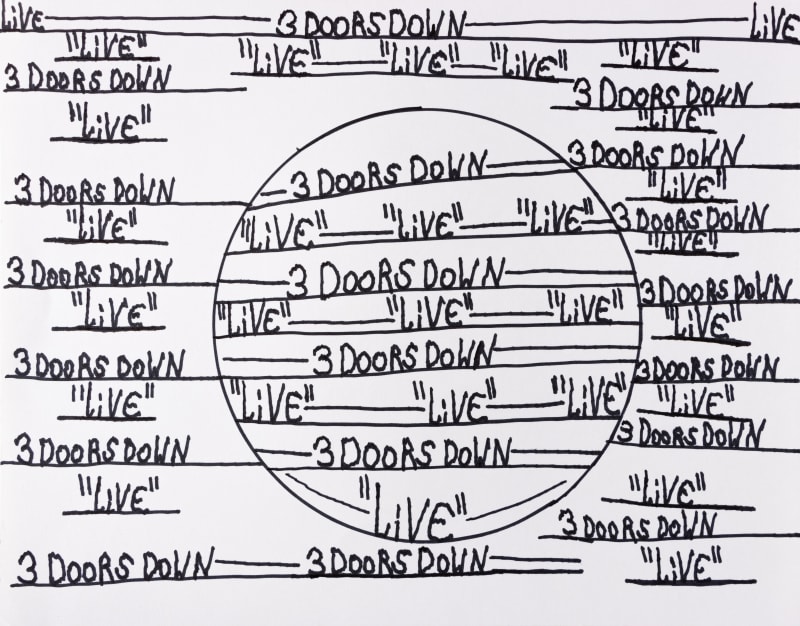 LiVE 3 DOORS DOWN LiVE
"LiVE" "LiVE" "LiVE" "LiVE" "LiVE"
3 DOORS DOWN 3 DOORS DOWN
"LiVE" "LiVE"
3 DOORS DOWN 3 DOORS DOWN 3 DOORS DOWN
"LiVE"
"LiVE" "LiVE" "LiVE" "LiVE" 3 DOORS DOWN
"LiVE"
3 DOORS DOWN 3 DOORS DOWN 3 DOORS DOWN
"LiVE" "LiVE" "LiVE" "LiVE" "LiVE"
3 DOORS DOWN 3 DOORS DOWN 3 DOORS DOWN
"LiVE" "LiVE" "LiVE" "LiVE" "LiVE"
3 DOORS DOWN 3 DOORS DOWN 3 DOORS DOWN
"LiVE" "LiVE" "LiVE"
3 DOORS DOWN
3 DOORS DOWN 3 DOORS DOWN "LiVE"